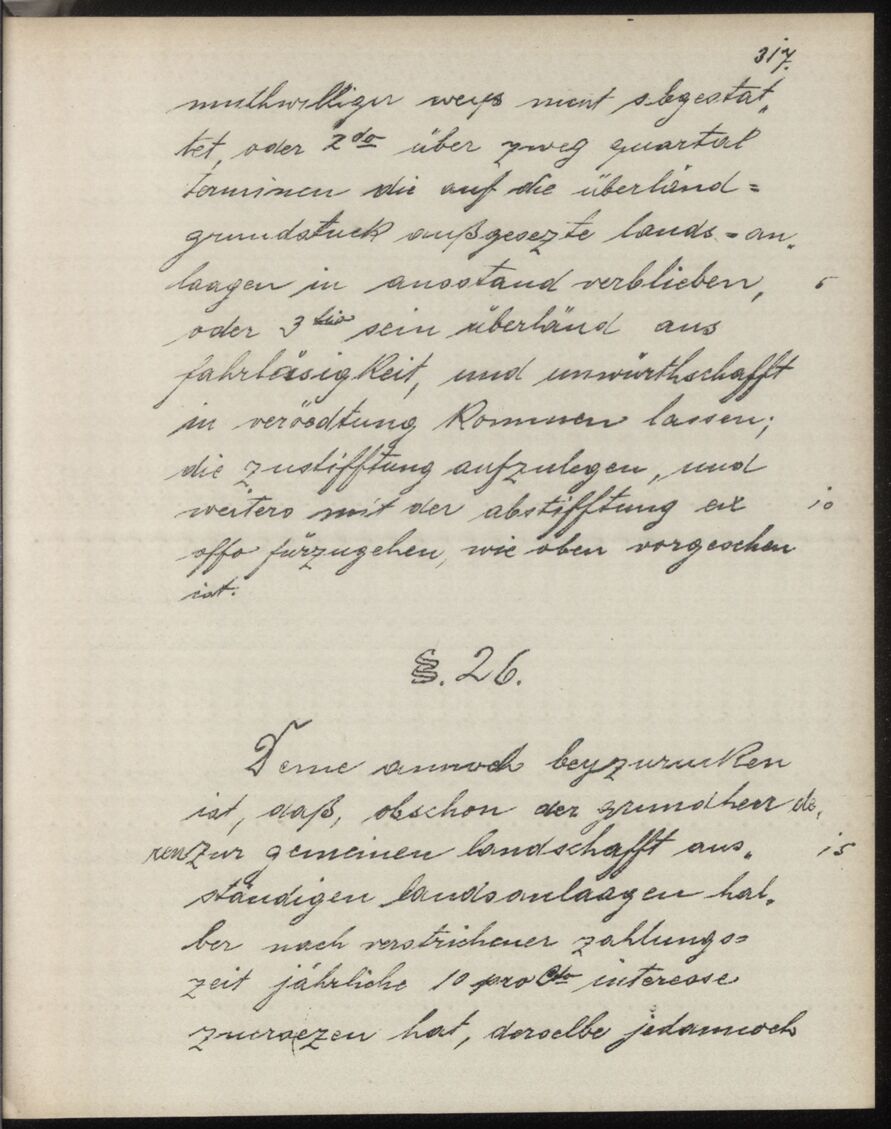 317.
muthwilliger weyß nicht abgestat„
tet, oder 2do über zweg quartal
terminen die auf die überländ=
grundstuck außgesezte lands=an„
laagen in ausstand verblieben, 5
oder 3tio sein überländ aus
fahrläsigkeit, und unwürthschafft
in veröedtung kommen lassen;
die zustifftung aufzulegen, und
weiters mit der abstifftung ex 10
offo fürzugehen, wie oben vorgesehen
ist.
§. 26.
Deme annoch beyzurucken
ist, daß, obschon der grundherr de„
ren zur gemeinen landschafft aus„ 15
ständigen landsanlaagen hal„
ber nach verstrichener zahlungs=
zeit jährliche 10 pro Cto interesse
zuersezen hat, derselbe jedannoch